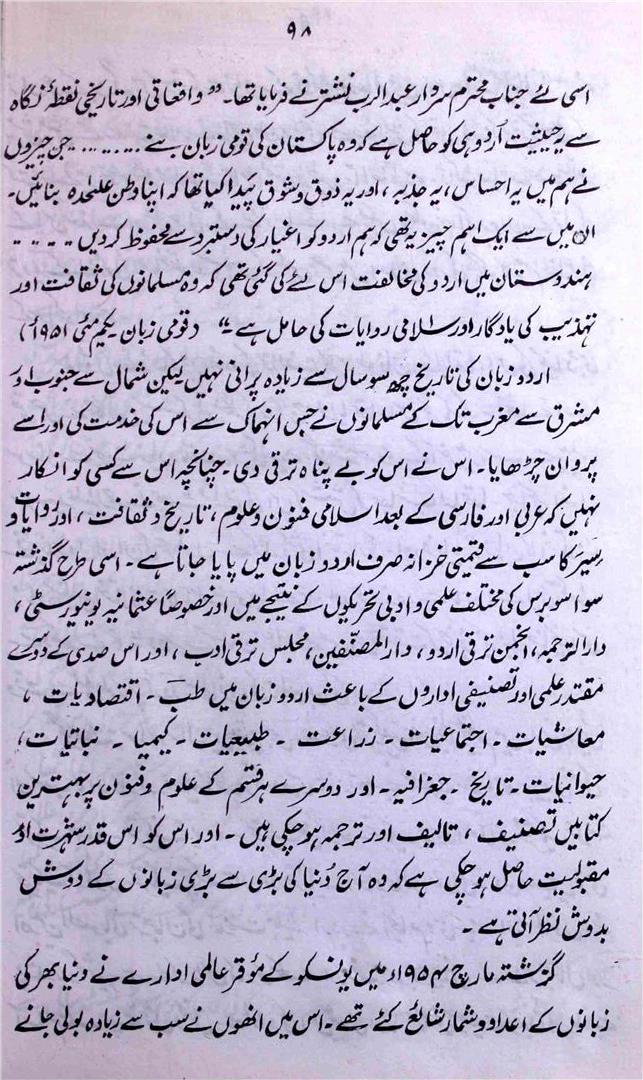 ۹۸
اسی لئے جناب محترم سردار عبدالرب نشتر نے فرمایا تھا۔ ” واقعاتی اور تاریخی نقطۂ نگاہ
سے یہ حیثیت اُردو ہی کو حاصل ہے کہ وہ پاکستان کی قومی زبان بنے ........ جن چیزوں
نے ہم میں یہ احساس، یہ جذبہ، اور یہ ذوق و شوق پیدا کیا تھا کہ اپنا وطن علیحدہ بنائیں۔
ان میں سے ایک اہم چیز یہ تھی کہ ہم اردو کو اغیار کی دستبرد سے محفوظ کر دیں .....
ہندوستان میں اردو کی مخالفت اس لئے کی گئی تھی کہ وہ مسلمانوں کی ثقافت اور
تہذیب کی یادگار اور اسلامی روایات کی حامل ہے ۔“ (قومی زبان یکم مئی ۱۹۵۱ء)
اردو زبان کی تاریخ چھ سو سال سے زیادہ پرانی نہیں لیکن شمال سے جنوب اور
مشرق سے مغرب تک کے مسلمانوں نے جس انہماک سے اس کی خدمت کی اور اسے
پروان چڑھایا۔ اس نے اس کو بے پناہ ترقی دی۔ چنانچہ اس سے کسی کو انکار
نہیں کہ عربی اور فارسی کے بعد اسلامی فنون و علوم، تاریخ و ثقافت، اور روایات و
سِیَر کا سب سے قیمتی خزانہ صرف اردو زبان میں پایا جاتا ہے۔ اسی طرح گذشتہ
سوا سو برس کی مختلف علمی و ادبی تحریکوں کے نتیجے میں اور خصوصاً عثمانیہ یونیورسٹی،
دارالترجمہ، انجمن ترقی اردو، دارالمصنّفین، مجلس ترقی ادب، اور اس صدی کے دوسرے
مقتدر علمی اور تصنیفی اداروں کے باعث اردو زبان میں طب۔ اقتصادیات ،
معاشیات ۔ اجتماعیات ۔ زراعت ۔ طبیعیات ۔ کیمیا ۔ نباتیات،
حیوانیات۔ تاریخ ۔ جغرافیہ۔ اور دوسرے ہر قسم کے علوم و فنون پر بہترین
کتابیں تصنیف، تالیف اور ترجمہ ہو چکی ہیں ۔ اور اس کو اس قدر شہرت اور
مقبولیت حاصل ہو چکی ہے کہ وہ آج دُنیا کی بڑی سے بڑی زبانوں کے دوش
بدوش نظر آتی ہے ۔
گزشتہ مارچ ۱۹۵۴ء میں یونسکو کے مؤقر عالمی ادارے نے دنیا بھر کی
زبانوں کے اعداد و شمار شائع کئے تھے۔ اس میں انھوں نے سب سے زیادہ بولی جانے